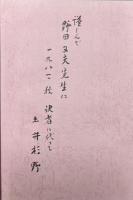 謹しんで
野田又夫先生に
一九八八 秋 訳者に代って
土井杉野